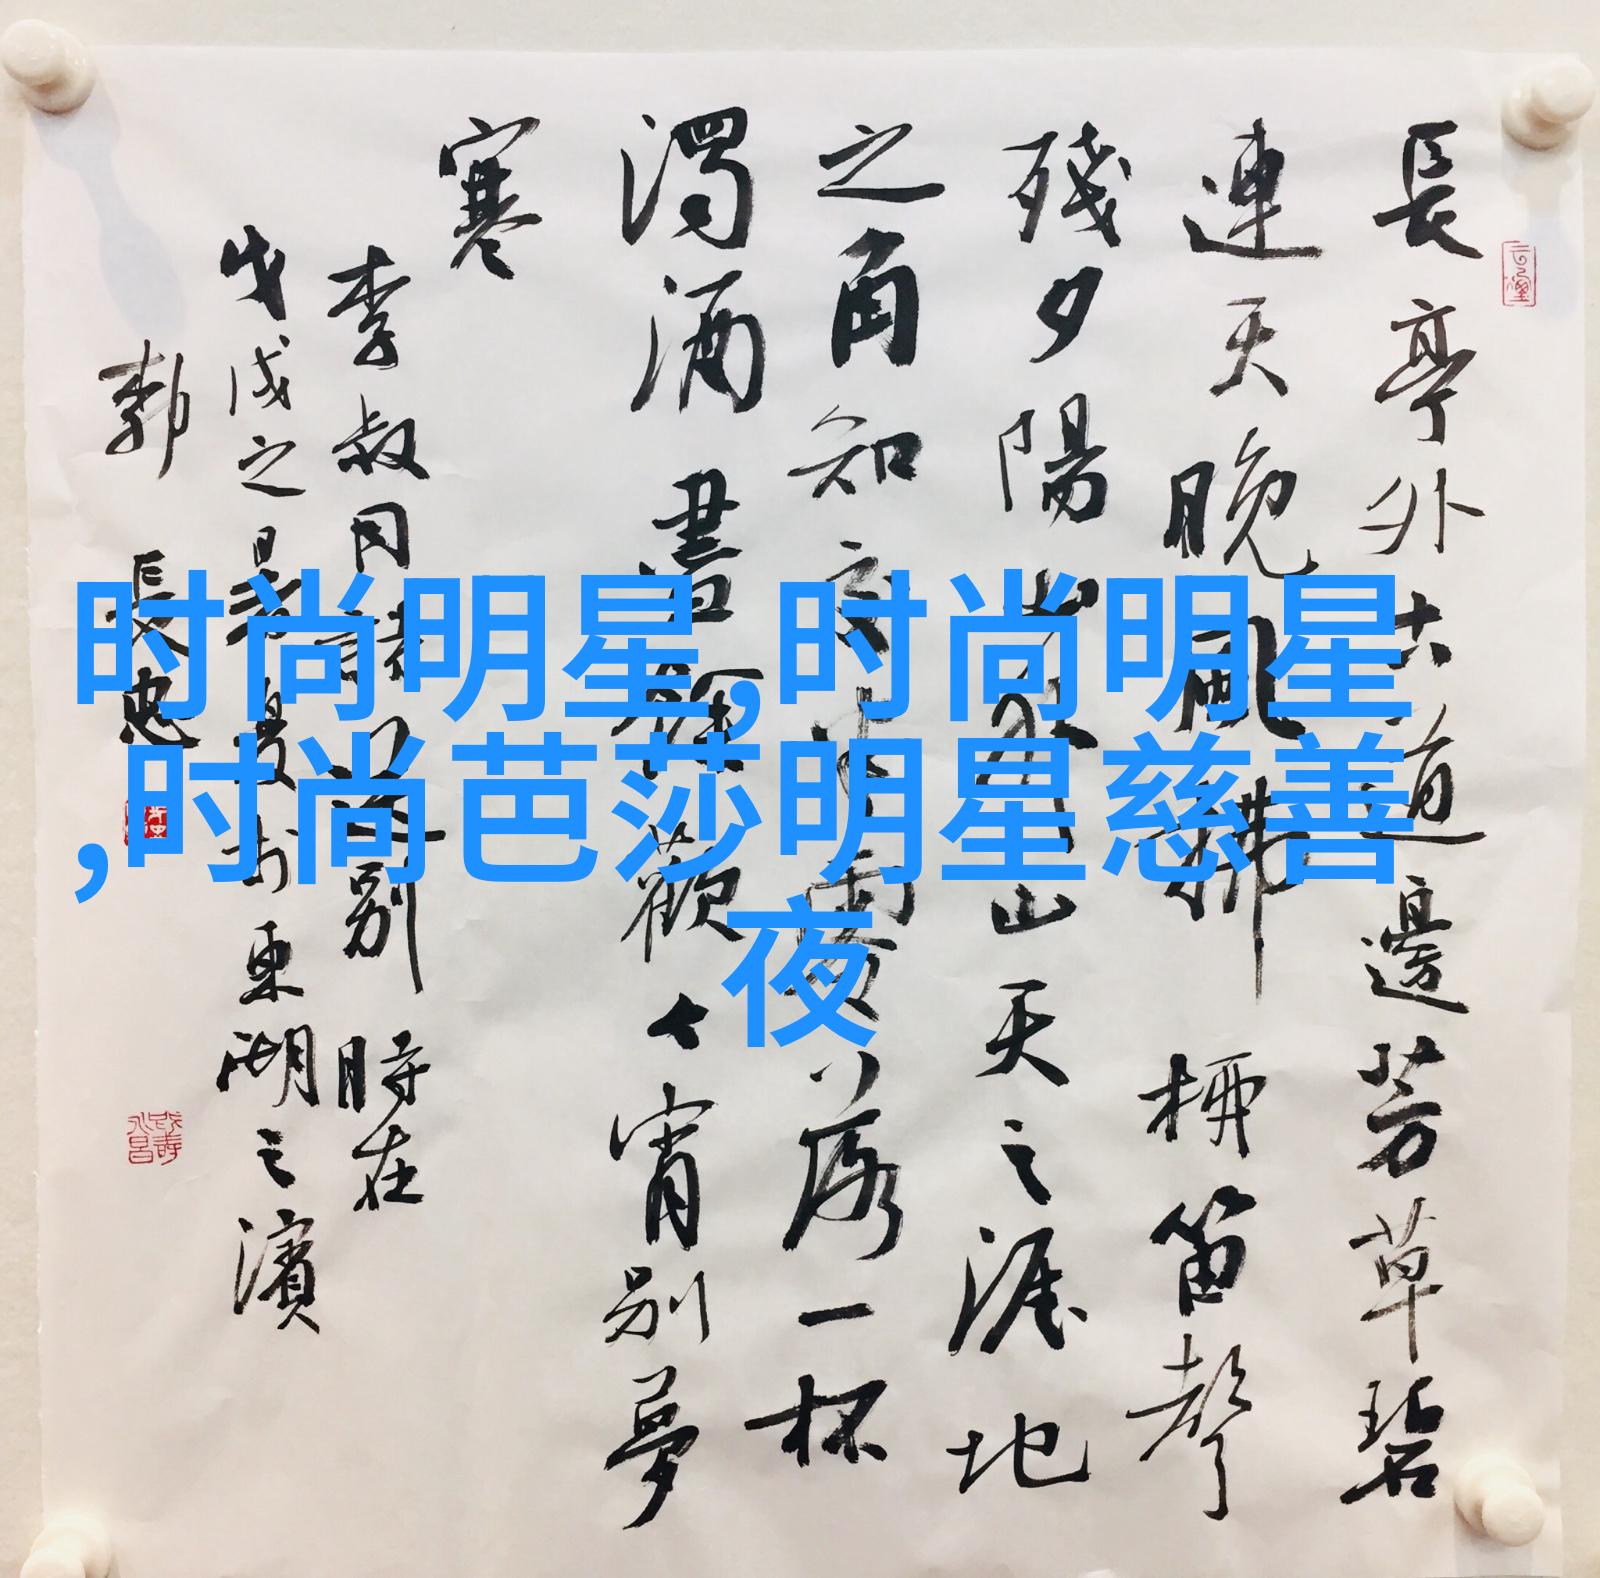 長亭外古道邊芳草碧
連天晚風拂柳笛聲
殘夕陽山外山天之涯地
之角知交半零落一杯
濁酒盡餘歡今宵別夢
寒
李叔同詩送別時在
戊戌之暑夏於東湖之濱
郭長忠
时尚明星,时尚明星
,时尚芭莎明星慈善
夜